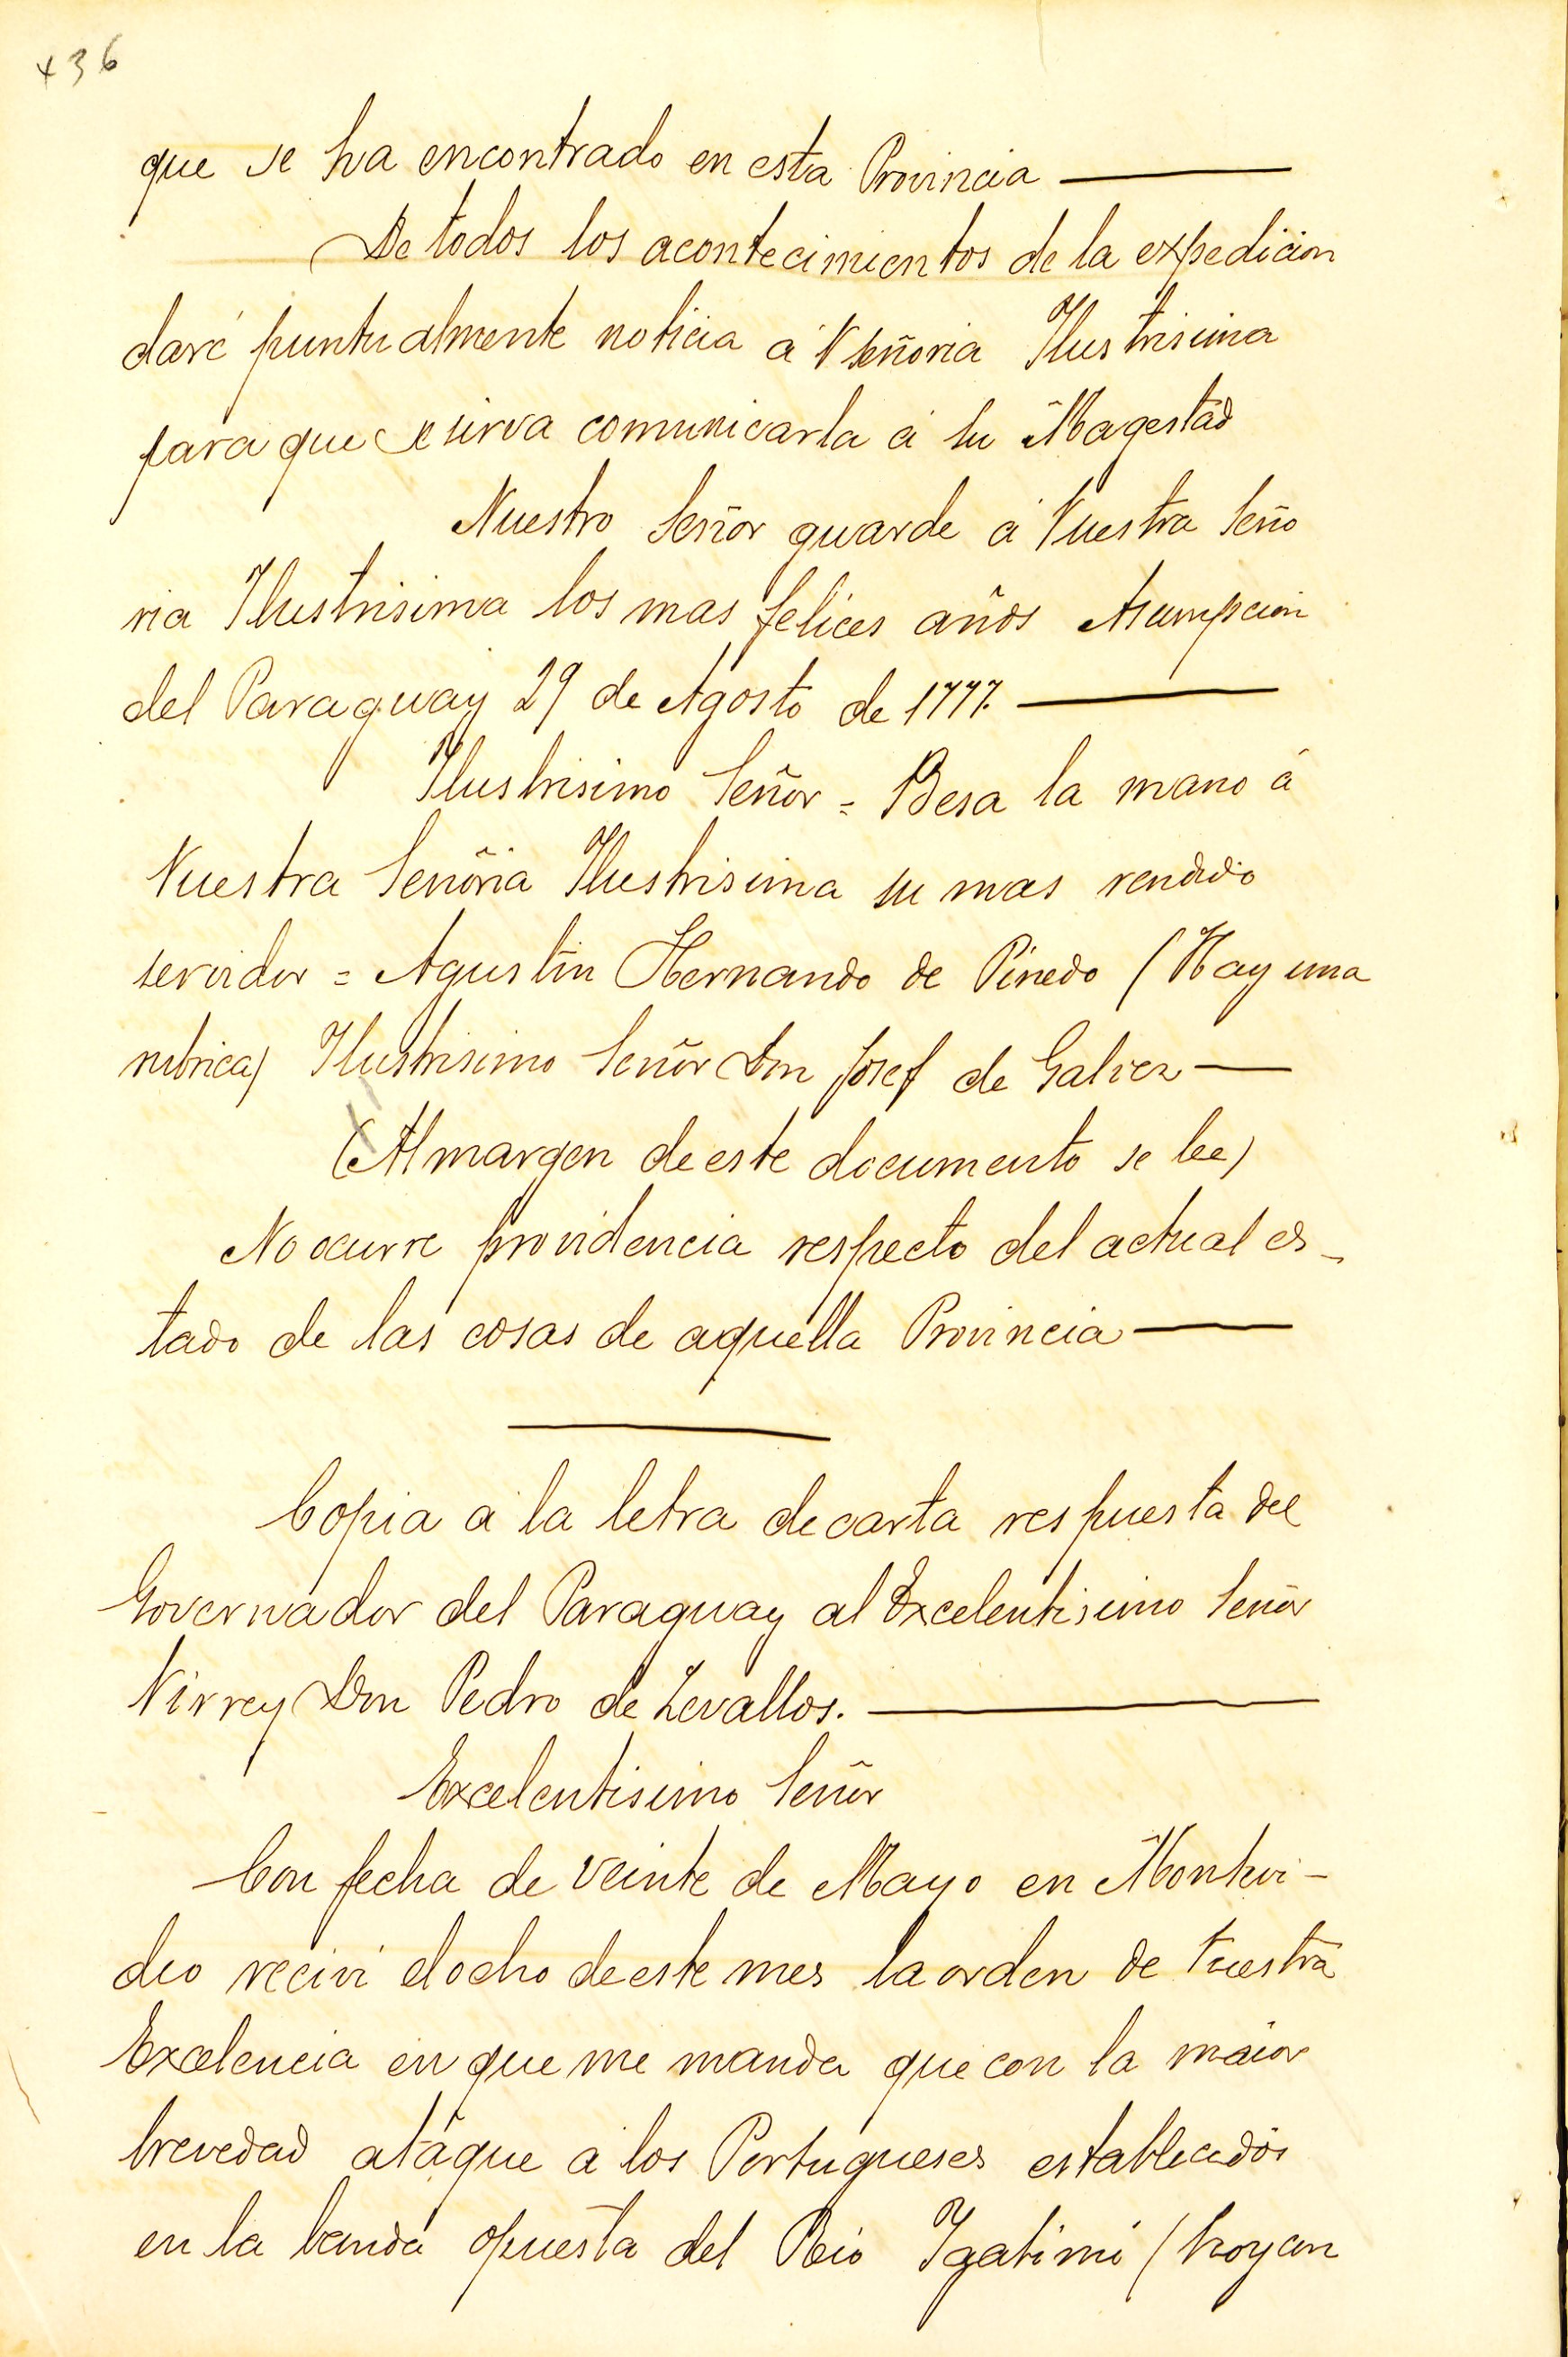 436
que se ha encontrado en esta Provincia ——
De todos los acontecimientos de la expedicion
daré puntualmente noticia á V Señoria Ilustrisima
para que se sirva comunicarla á su Magestad
Nuestro Señor guarde á Vuestra Seño
ria Ilustrisima los mas felices años Asumpcion
del Paraguay 29 de Agosto de 1777. ——
Ilustrisimo Señor = Besa la mano á
Vuestra Señoria Ilustrisima su mas rendido
servidor = Agustin Hernando de Pinedo (Hay una
rubrica) Ilustrisimo Señor Don Josef de Galvez ——
(Al margen de este documento se lee)
No ocurre providencia respecto del actual es-
tado de las cosas de aquella Provincia ——
Copia a la letra de carta respuesta del
Governador del Paraguay al Excelentisimo Señor
Virrey Don Pedro de Zevallos. ——
Excelentisimo Señor
Con fecha de veinte de Mayo en Montevi-
deo recivi el ocho de este mes la orden de Vuestra
Excelencia en que me manda que con la maior
brevedad atáque a los Portugueses establecidos
en la banda opuesta del Rio Ygatimi (hoy con